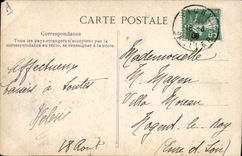 CARTE POSTALE
Correspondance
Tous les pays étrangers n'acceptent pas la
correspondance au recto, se renseigner à la poste.
Affectueux
baisers à toutes
Hélène
18 Août
Mademoiselle
M. Mayen
Villa Moreau
Nogent le Roy
(Eure et Loir)